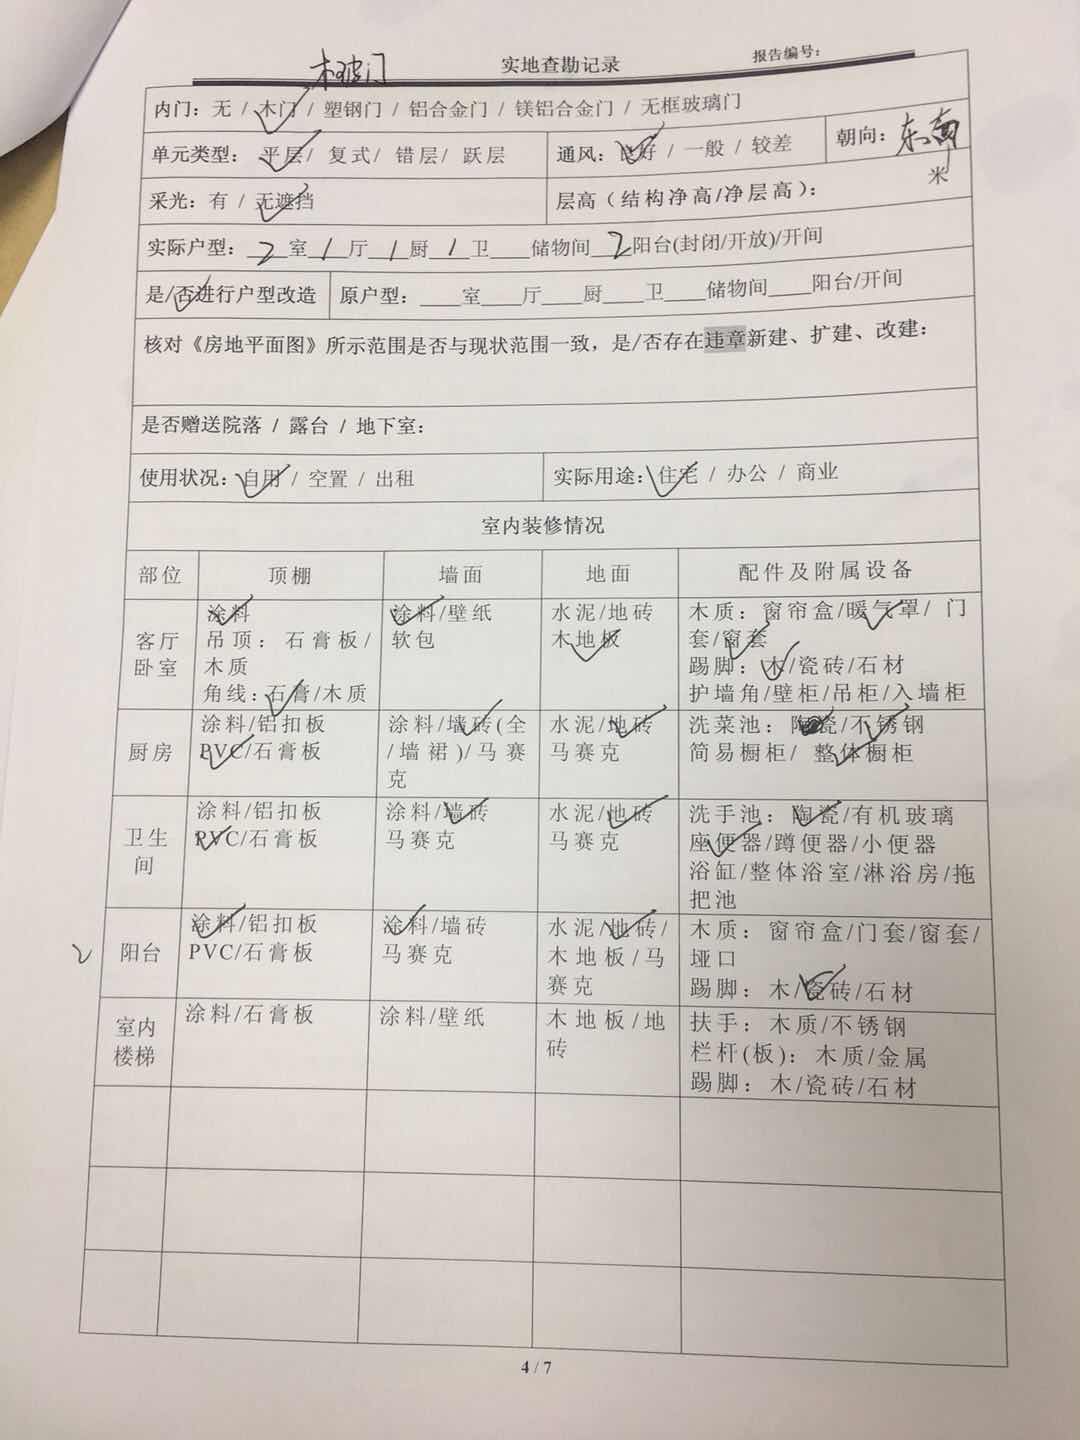 实地查勘记录
报告编号：
木玻门
内门：无 / 木门 / 塑钢门 / 铝合金门 / 镁铝合金门 / 无框玻璃门
单元类型：平层/ 复式/ 错层/ 跃层
通风：良好 / 一般 / 较差
朝向：东南
采光：有 / 无遮挡
层高（结构净高/净层高）：
米
实际户型：2室1厅1厨1卫____储物间2阳台(封闭/开放)/开间
是/否进行户型改造
原户型：____室____厅____厨____卫____储物间____阳台/开间
核对《房地平面图》所示范围是否与现状范围一致，是/否存在违章新建、扩建、改建：
是否赠送院落 / 露台 / 地下室：
使用状况：自用 / 空置 / 出租
实际用途：住宅 / 办公 / 商业
室内装修情况
部位 顶棚 墙面 地面 配件及附属设备
客厅
卧室
涂料
吊顶：石膏板/
木质
角线：石膏/木质
涂料/壁纸
软包
水泥/地砖
木地板
木质：窗帘盒/暖气罩/ 门
套/窗套
踢脚：木/瓷砖/石材
护墙角/壁柜/吊柜/入墙柜
厨房
涂料/铝扣板
PVC/石膏板
涂料/墙砖(全
/墙裙)/马赛
克
水泥/地砖
马赛克
洗菜池：陶瓷/不锈钢
简易橱柜/ 整体橱柜
卫生
间
涂料/铝扣板
PVC/石膏板
涂料/墙砖
马赛克
水泥/地砖
马赛克
洗手池：陶瓷/有机玻璃
座便器/蹲便器/小便器
浴缸/整体浴室/淋浴房/拖
把池
2
阳台
涂料/铝扣板
PVC/石膏板
涂料/墙砖
马赛克
水泥/地砖/
木地板/马
赛克
木质：窗帘盒/门套/窗套/
垭口
踢脚：木/瓷砖/石材
室内
楼梯
涂料/石膏板
涂料/壁纸
木地板/地
砖
扶手：木质/不锈钢
栏杆(板)：木质/金属
踢脚：木/瓷砖/石材
4 / 7